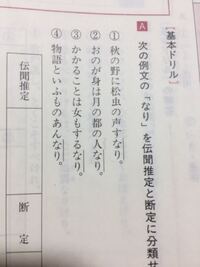 [基本ドリル]
A 次の例文の「なり」を伝聞推定と断定に分類せ
① 秋の野に松虫の声すなり。
② おのが身は月の都の人なり。
③ かかることは女もするなり。
④ 物語といふものあんなり。
伝聞推定
断定